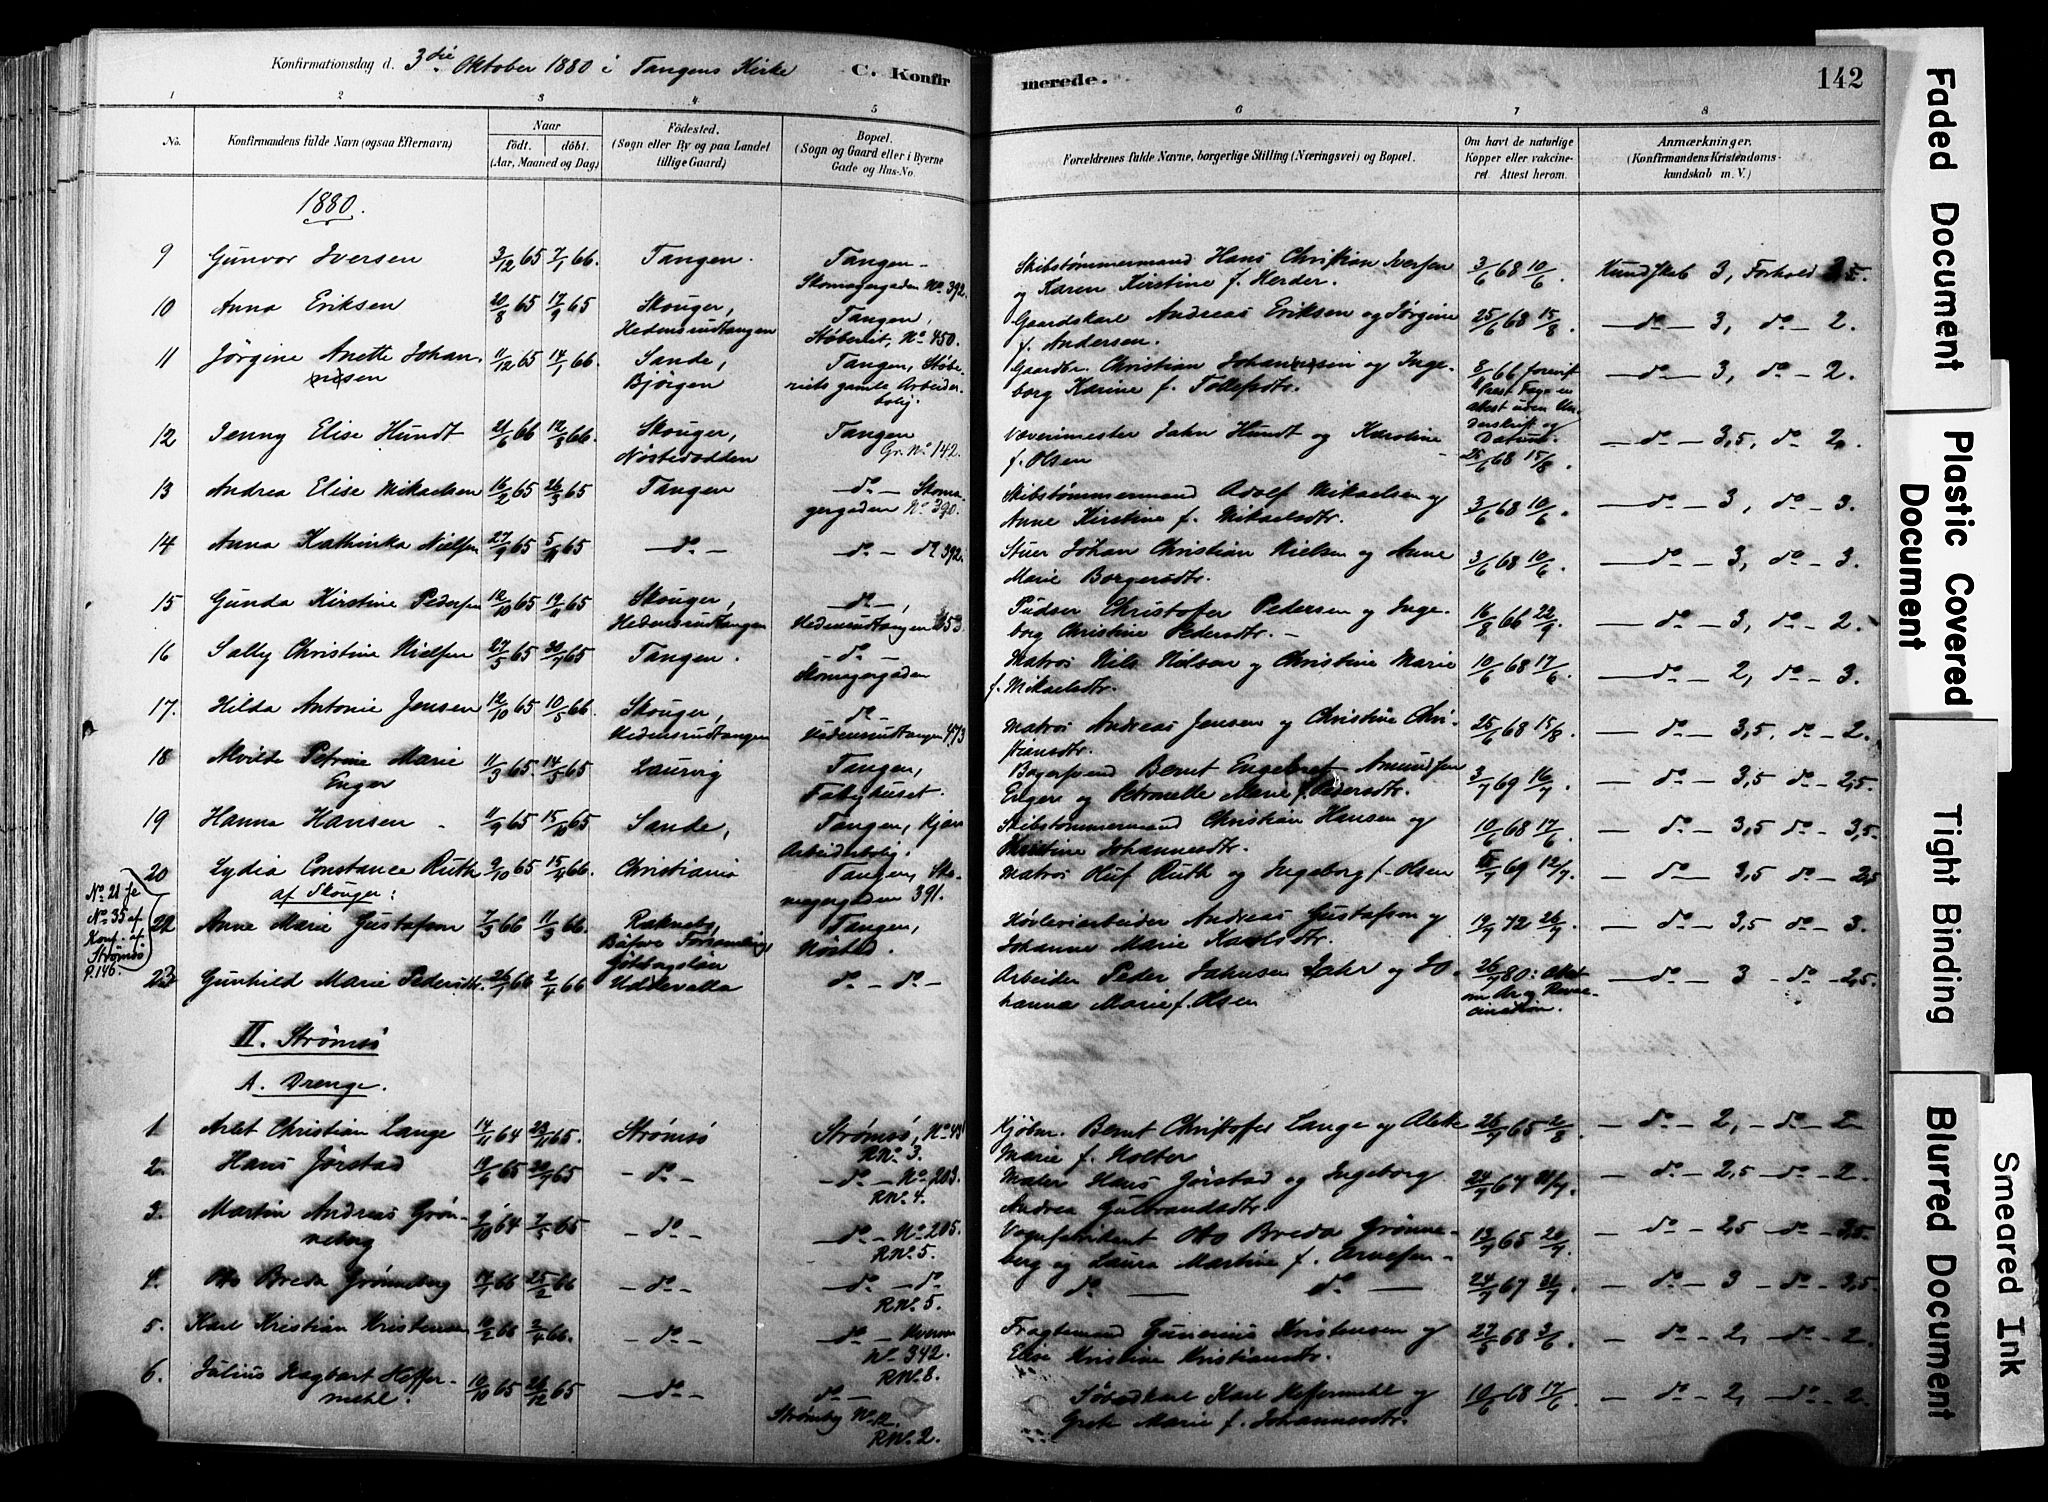 Konfirmationsdag d. 3die Oktober 1880 i Tangens Kirke C. Konfir merede. 142
1 2 3 4 5 6 7 8
No. Konfirmandens fulde Navn (ogsaa Efternavn) Naar født. døbt. (Aar, Maaned og Dag) Fødested. (Sogn eller By og paa Landet tillige Gaard) Bopæl. (Sogn og Gaard eller i Byerne Gade og Hus-No. Forældrenes fulde Navne, borgerlige Stilling (Næringsvei) og Bopæl. Om havt de naturlige Kopper eller vakcineret. Attest herom. Anmærkninger. (Konfirmandens Kristendomskundskab m. V.)
1880.
9 Gunvor Iversen 3/12 65 7/1 66. Tangen. Tangen - Skibstømmermand Hans Christian Iversen 3/6 68 10/6. Kundskab 3, Forhold 3,5.
Skomagergaden No. 392. og Karen Kirstine f. Herder.
10 Anna Eriksen 20/8 65 17/9 65 Skouger, Tangen, Gaardskarl Andreas Eriksen og Jørgine 25/6 68 15/8. — do — 3, do — 2.
Hedensrudtangen Støberiet, No. 450. f. Andersen.
11 Jørgine Anette Johan- 11/12 65 14/1 66. Sande, Tangen, Støbe- Gaardbr. Christian Johannesen og Inge- 8/11 66 — do — 3, do — 2.
sen Bjørgen riets gamle Arbeider- borg Karine f. Tollefsdtr.
bolig. attest uden Un-
12 Jenny Elise Hundt 21/6 66 12/8 66. Skouger, Tangen Væverimester Jahn Hundt og Karoline derskrift og Datum. — do — 3,5, do — 2,
Nøstedodden Gr. No. 142. f. Olsen 25/6 68 15/8.
13 Andrea Elise Mikaelsen 16/2 65 26/3 65 Tangen — do — Skoma- Skibstømmermand Adolf Mikaelsen og 3/6 68 10/6. — do — 3, do — 3.
gergaden No. 390. Anne Kirstine f. Mikaelsdtr.
14 Anna Kathinka Nielsen 27/9 65 5/11 65 — do — — do — do 392. Stuer Johan Christian Nielsen og Anne 3/6 68 10/6. — do — 3, do — 3.
Marie Borgersdtr.
15 Gunda Kirstine Pedersen 12/10 65 19/11 65 Skouger, — do —, Pudser Christofer Pedersen og Inge- 16/8 66 22/9. — do — 3, do — 2.
Hedensrudtangen Hedensrudtangen 353. borg Christine Pedersdtr. —
16 Sally Christine Nielsen 27/5 65 30/7 65 Tangen. — do — Matros Nils Nilsen og Christine Marie 10/6 68 17/6 — do — 2, do — 3.
Skomagergaden f. Mikaelsdtr.
17. Hilda Antonie Jensen 12/10 65 10/5 66. Skouger, — do — Matros Andreas Jensen og Christine Chri- 25/6 68 15/8. — do — 3,5, do — 2.
Hedensrudtangen Hedensrudtangen 473 stiansdtr.
18 Alvilde Petrine Marie 11/3 65. 14/5 65 Laurvig Tangen, Bagersvend Bernt Engebret Amundsen 3/7 69 16/7 — do — 3,5 do — 2,5.
Enger Engere og Petronelle Marie f. Pedersdtr.
19 Hanna Hansen 11/9 65 15/10 65 Sande, Tangen, Skibstømmermand Christian Hansen og 10/6 68 17/6 — do — 3,5 do — 3,5.
Arbeiderbolig. Kristine Johannesdtr.
20 Lydia Constance Ruth 9/10 65 15/4 66. Christiania Tangen, Sko- Matros Oluf Ruth og Ingeborg f. Olsen 5/7 69 12/7. — do — 3,5 do — 2,5
af Skouger: magergaden 391.
No. 21 se No. 35 af Konf. af Strømsø p. 146.
22 Anne Marie Gustafson 7/3 66 11/3 66. Tangen, Høvleriarbeider Andreas Gustafson og 19/9 72 26/9 — do — 3,5 do — 3.
Nøsted. Johanne Marie Karlsdtr.
23. Gunhild Marie Pedersdtr. 26/1 66 2/4 66 Uddevalla — do — do — Arbeider Peder Jahnsen og Jo- 26/9 80: — do — 3 — do — 2,5.
hanna Marie f. Olsen
II. Strømsø
A. Drenge.
1 Christian Lange 14/11 64 29/1 65. Strømsø Strømsø, Kjøbm. Bernt Christofer Lange og 26/7 65 2/8. — do — 2, — do — 2
R No. 3. Marie f. Holter
2. Hans Jørstad 19/6 65 30/7 65 — do — — do — No. 203. Maler Hans Jørstad og Ingeborg 24/7 67 31/7. — do — 2,5 — do — 2.
R No. 4. Andrea Gulbrandsdtr.
3. Martin Andreas Grøn- 9/10 64 7/5 65 — do — — do — No. 205. Vognfabrikant Bo Breda Grønne- 19/7 65 26/7. — do — 2,5 — do — 2,5.
neberg R No. 5. berg og Laura Martine f. Arnesen —
4. Bo Breda Grønneberg 17/1 66 25/2 66 — do — — do — do do — do — 24/7 67 31/7 — do — 3 — do — 3,5.
R No. 5.
5. Karl Kristian Kristensen 10/2 66 2/4 66. — do — — do — Fragtemand Kristensen og 27/5 68 3/6. — do — 2, — do — 2.
No. 342. Elise Kristine Kristiansdtr.
R No. 8.
6. Julius Hagbart Heffer- 10/10 65 26/12 65 — do — — do — Karl Heffermehl og 10/6 68 17/6 — do — 2, — do — 2.
mehl. Strømsby No. 12. Grete Marie f. Johannesdtr.
R No. 2.
Faded Document
Plastic Covered Document
Tight Binding
Blurred Document
Smeared Ink